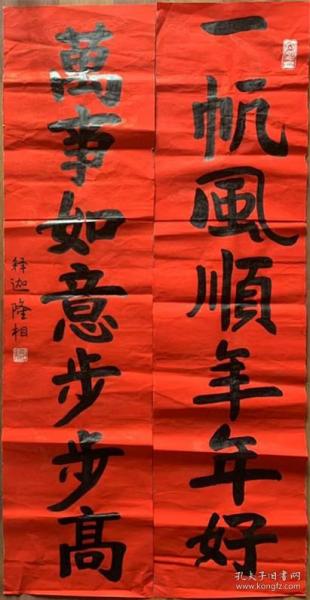 一帆風順年年好
萬事如意步步高
释迦隆相
孔夫子旧书网